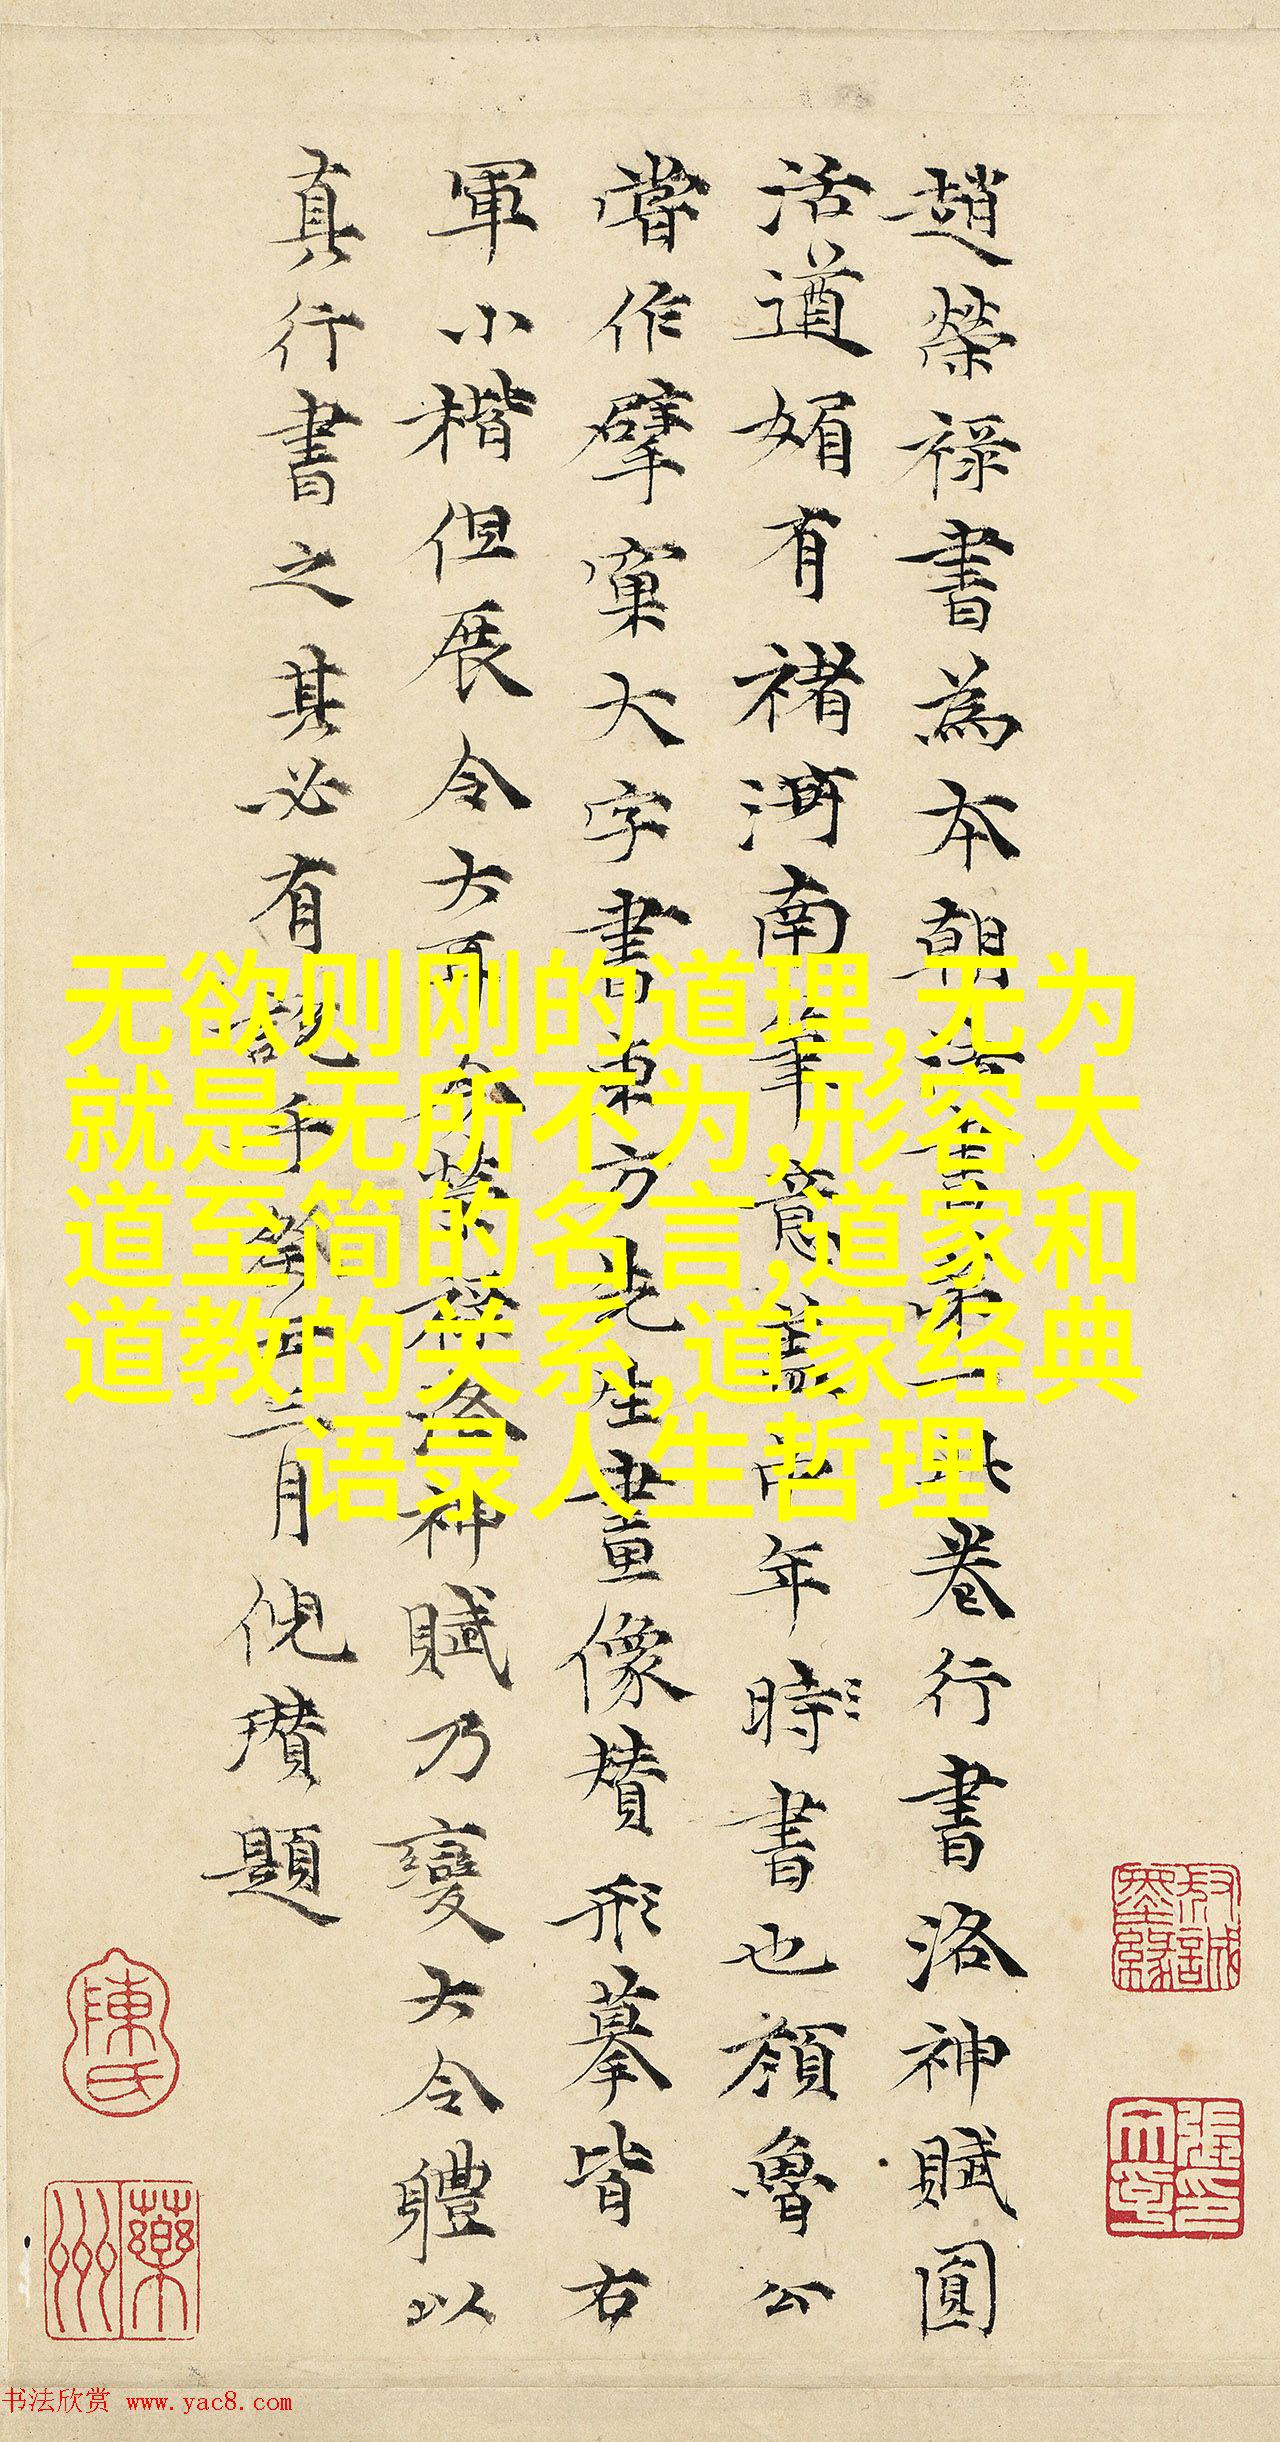 趙榮祿書為本朝法書第一此卷行書洛神賦圓
活遒媚有褚河南筆意蓋中年時書也顏魯公
嘗作擘窠大字書東方先生畫像贊形摹皆右
軍小楷但展令大耳今榮祿洛神賦乃變大令體以
真行書之其必有說乎
月倪瓚題
无欲则刚的道理,无为
就是无所不为,形容大
道至简的名言,道家和
道教的关系,道家经典
语录人生哲理
陳氏
藥洲
书法欣赏 www.yac8.com